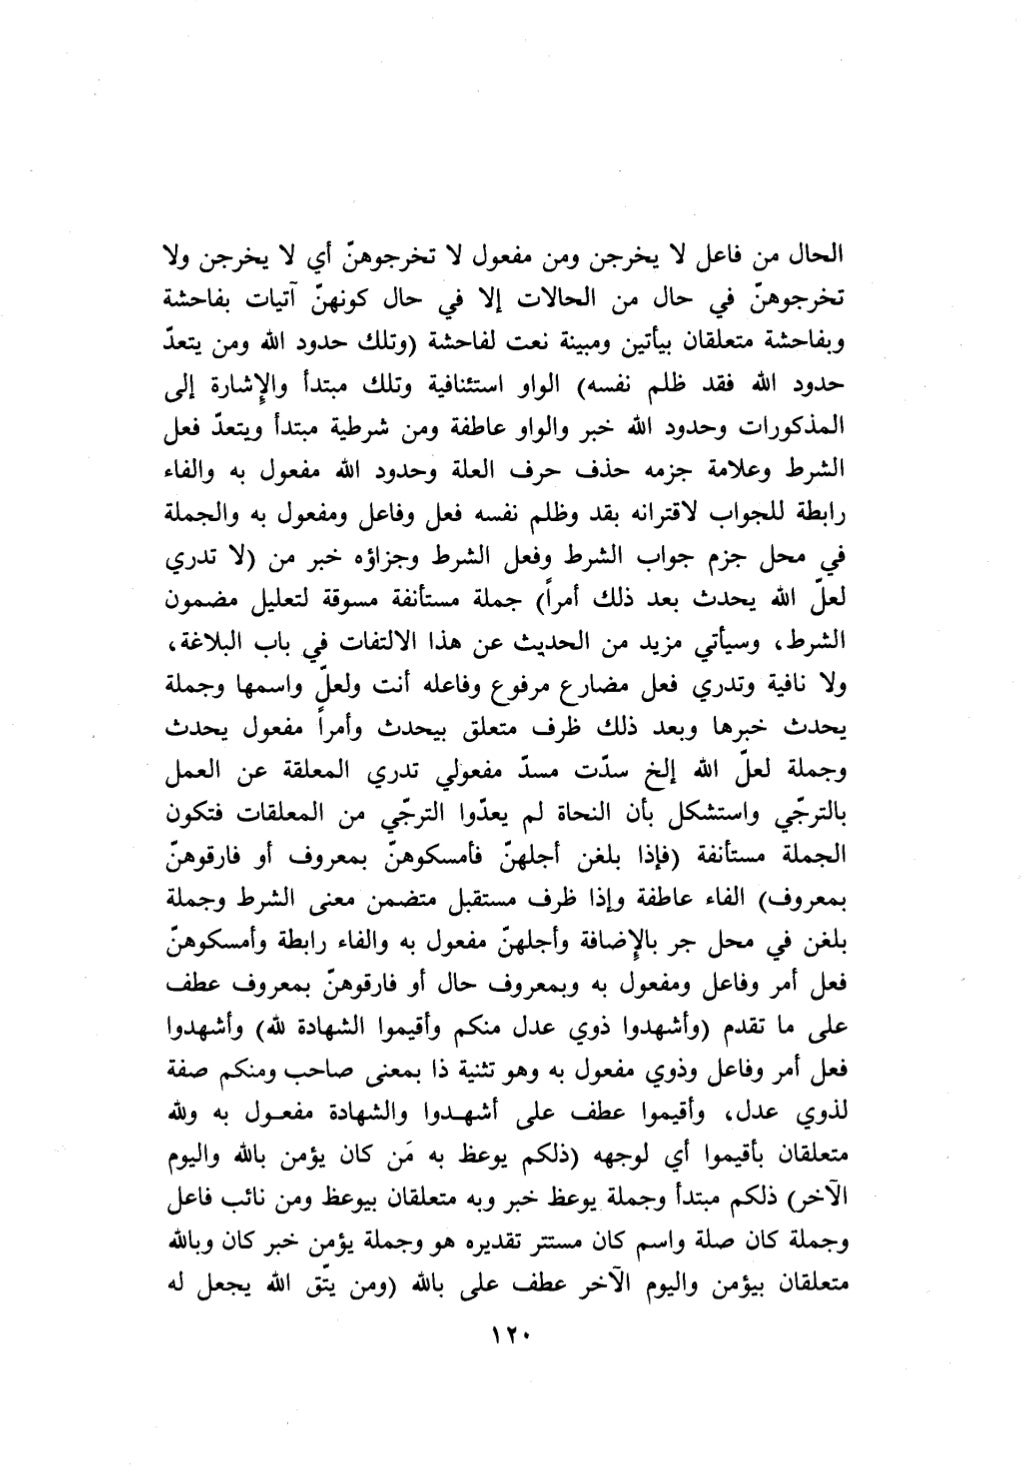 الحال من فاعل لا يخرجن ومن مفعول لا تخرجوهنّ أي لا يخرجن ولا
تخرجوهنّ في حال من الحالات إلا في حال كونهنّ آتيات بفاحشة
وبفاحشة متعلقان بيأتين ومبينة نعت لفاحشة (وتلك حدود الله ومن يتعدّ
حدود الله فقد ظلم نفسه) الواو استئنافية وتلك مبتدأ والإشارة إلى
المذكورات وحدود الله خبر والواو عاطفة ومن شرطية مبتدأ ويتعدّ فعل
الشرط وعلامة جزمه حذف حرف العلة وحدود الله مفعول به والفاء
رابطة للجواب لاقترانه بقد وظلم نفسه فعل وفاعل ومفعول به والجملة
في محل جزم جواب الشرط وفعل الشرط وجزاؤه خبر من (لا تدري
لعلّ الله يحدث بعد ذلك أمراً) جملة مستأنفة مسوقة لتعليل مضمون
الشرط، وسيأتي مزيد من الحديث عن هذا الالتفات في باب البلاغة،
ولا نافية وتدري فعل مضارع مرفوع وفاعله أنت ولعلّ واسمها وجملة
يحدث خبرها وبعد ذلك ظرف متعلق بيحدث وأمراً مفعول يحدث
وجملة لعلّ الله إلخ سدّت مسدّ مفعولي تدري المعلقة عن العمل
بالترجّي واستشكل بأن النحاة لم يعدّوا الترجّي من المعلقات فتكون
الجملة مستأنفة (فإذا بلغن أجلهنّ فأمسكوهنّ بمعروف أو فارقوهنّ
بمعروف) الفاء عاطفة وإذا ظرف مستقبل متضمن معنى الشرط وجملة
بلغن في محل جر بالإضافة وأجلهنّ مفعول به والفاء رابطة وأمسكوهنّ
فعل أمر وفاعل ومفعول به وبمعروف حال أو فارقوهنّ بمعروف عطف
على ما تقدم (وأشهدوا ذوي عدل منكم وأقيموا الشهادة لله) وأشهدوا
فعل أمر وفاعل وذوي مفعول به وهو تثنية ذا بمعنى صاحب ومنكم صفة
لذوي عدل، وأقيموا عطف على أشهـدوا والشهادة مفعـول به ولله
متعلقان بأقيموا أي لوجهه (ذلكم يوعظ به مَن كان يؤمن بالله واليوم
الآخر) ذلكم مبتدأ وجملة يوعظ خبر وبه متعلقان بيوعظ ومن نائب فاعل
وجملة كان صلة واسم كان مستتر تقديره هو وجملة يؤمن خبر كان وبالله
متعلقان بيؤمن واليوم الآخر عطف على بالله (ومن يتّق الله يجعل له
١٢٠